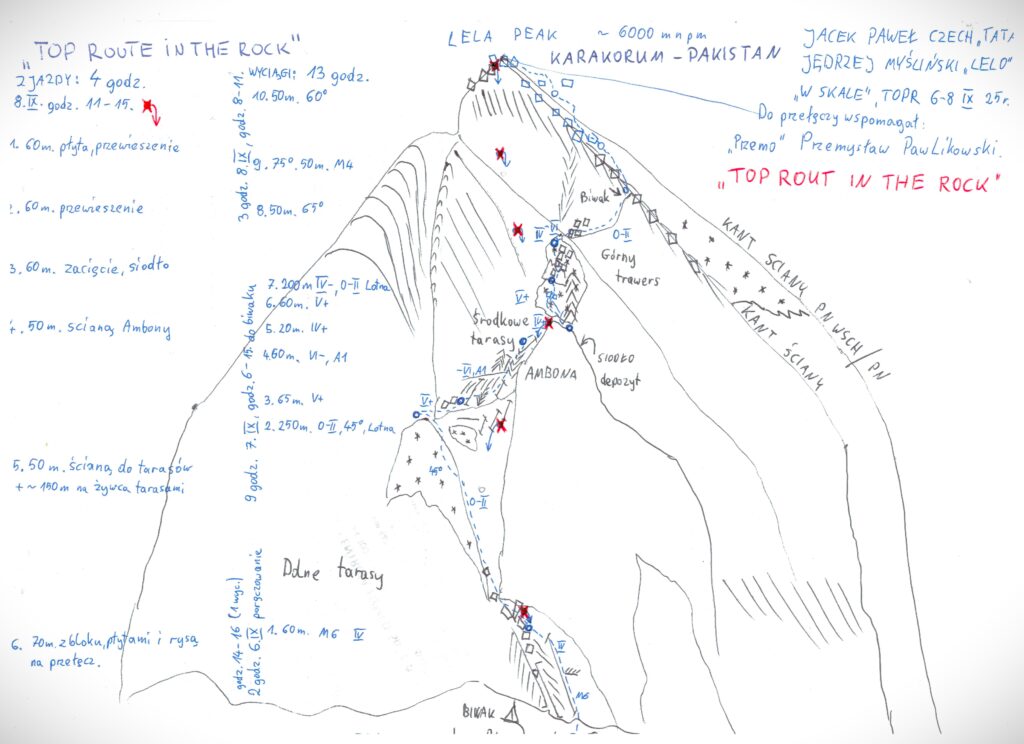 „TOP ROUTE IN THE ROCK"
ZJAZDY: 4 godz.
8.IX. godz. 11-15.
1. 60m. płyta, przewieszenie
2. 60m. przewieszenie
3. 60m. zacięcie, siodło
4. 50m. ścianą Ambony
5. 50m. ścianą do tarasów
+ ~ 150m na żywca tarasami
6. 70m. z bloku, płytami i rysą
na przełęcz.
WYCIĄGI: 13 godz.
10. 50m. 60°
9. 75°. 50m. M4
8. 50m. 65°
7. 200m IV-, 0-II Lotna
6. 60m. V+
5. 20m. IV+
4. 60m. VI-, A1
3. 65m. V+
2. 250m. 0-II, 45°, Lotna
1. 60m. M6 IV
3 godz. 8.IX, godz. 8-11,
9 godz. 7.IX, godz. 6-15. do biwaku
godz. 14-16 (1 wyc.)
2 godz. 6.IX poręczowanie
LELA PEAK ~ 6000 m n p m
KARAKORUM - PAKISTAN
JACEK PAWEŁ CZECH „TATA
JĘDRZEJ MYŚLIŃSKI „LELO"
„W SKALE", TOPR 6-8 IX 25r.
Do przełęczy wspomagał:
„Przemo" Przemysław Pawlikowski.
„TOP ROUT IN THE ROCK"
Biwak
0-II
Górny
trawers
KANT ŚCIANY PN WSCH/PN
KANT ŚCIANY
IV
VI-
V+
Środkowe
tarasy
IV+
SIODŁO
depozyt
AMBONA
-VI, A1
V+
45°
0-II
Dolne tarasy
III
M6
BIWAK